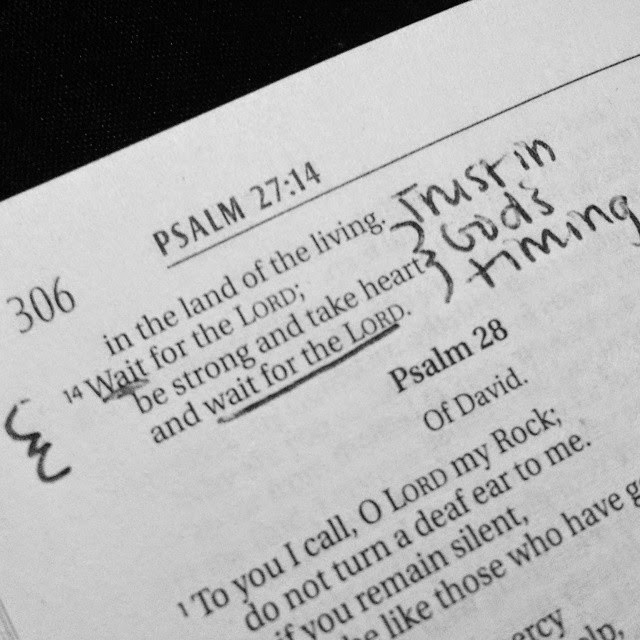 PSALM 27:14
306
in the land of the living.
14 Wait for the LORD;
be strong and take heart
and wait for the LORD.
Trust in
God's
timing
Psalm 28
Of David.
1 To you I call, O LORD my Rock;
do not turn a deaf ear to me.
if you remain silent,
be like those who have